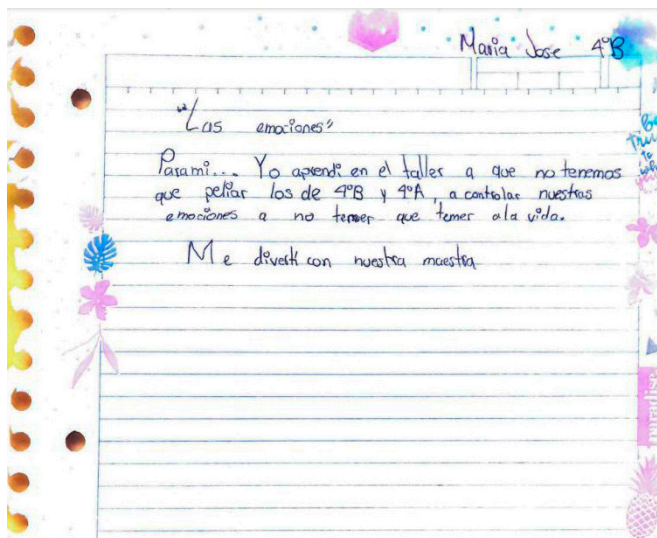 Maria Jose 4ºB
"Las emociones"
Parami... Yo aprendi en el taller a que no tenemos
que peliar los de 4ºB y 4ºA, a controlar nuestras
emociones a no tener que temer ala vida.
Me diverti con nuestra maestra
Paradise